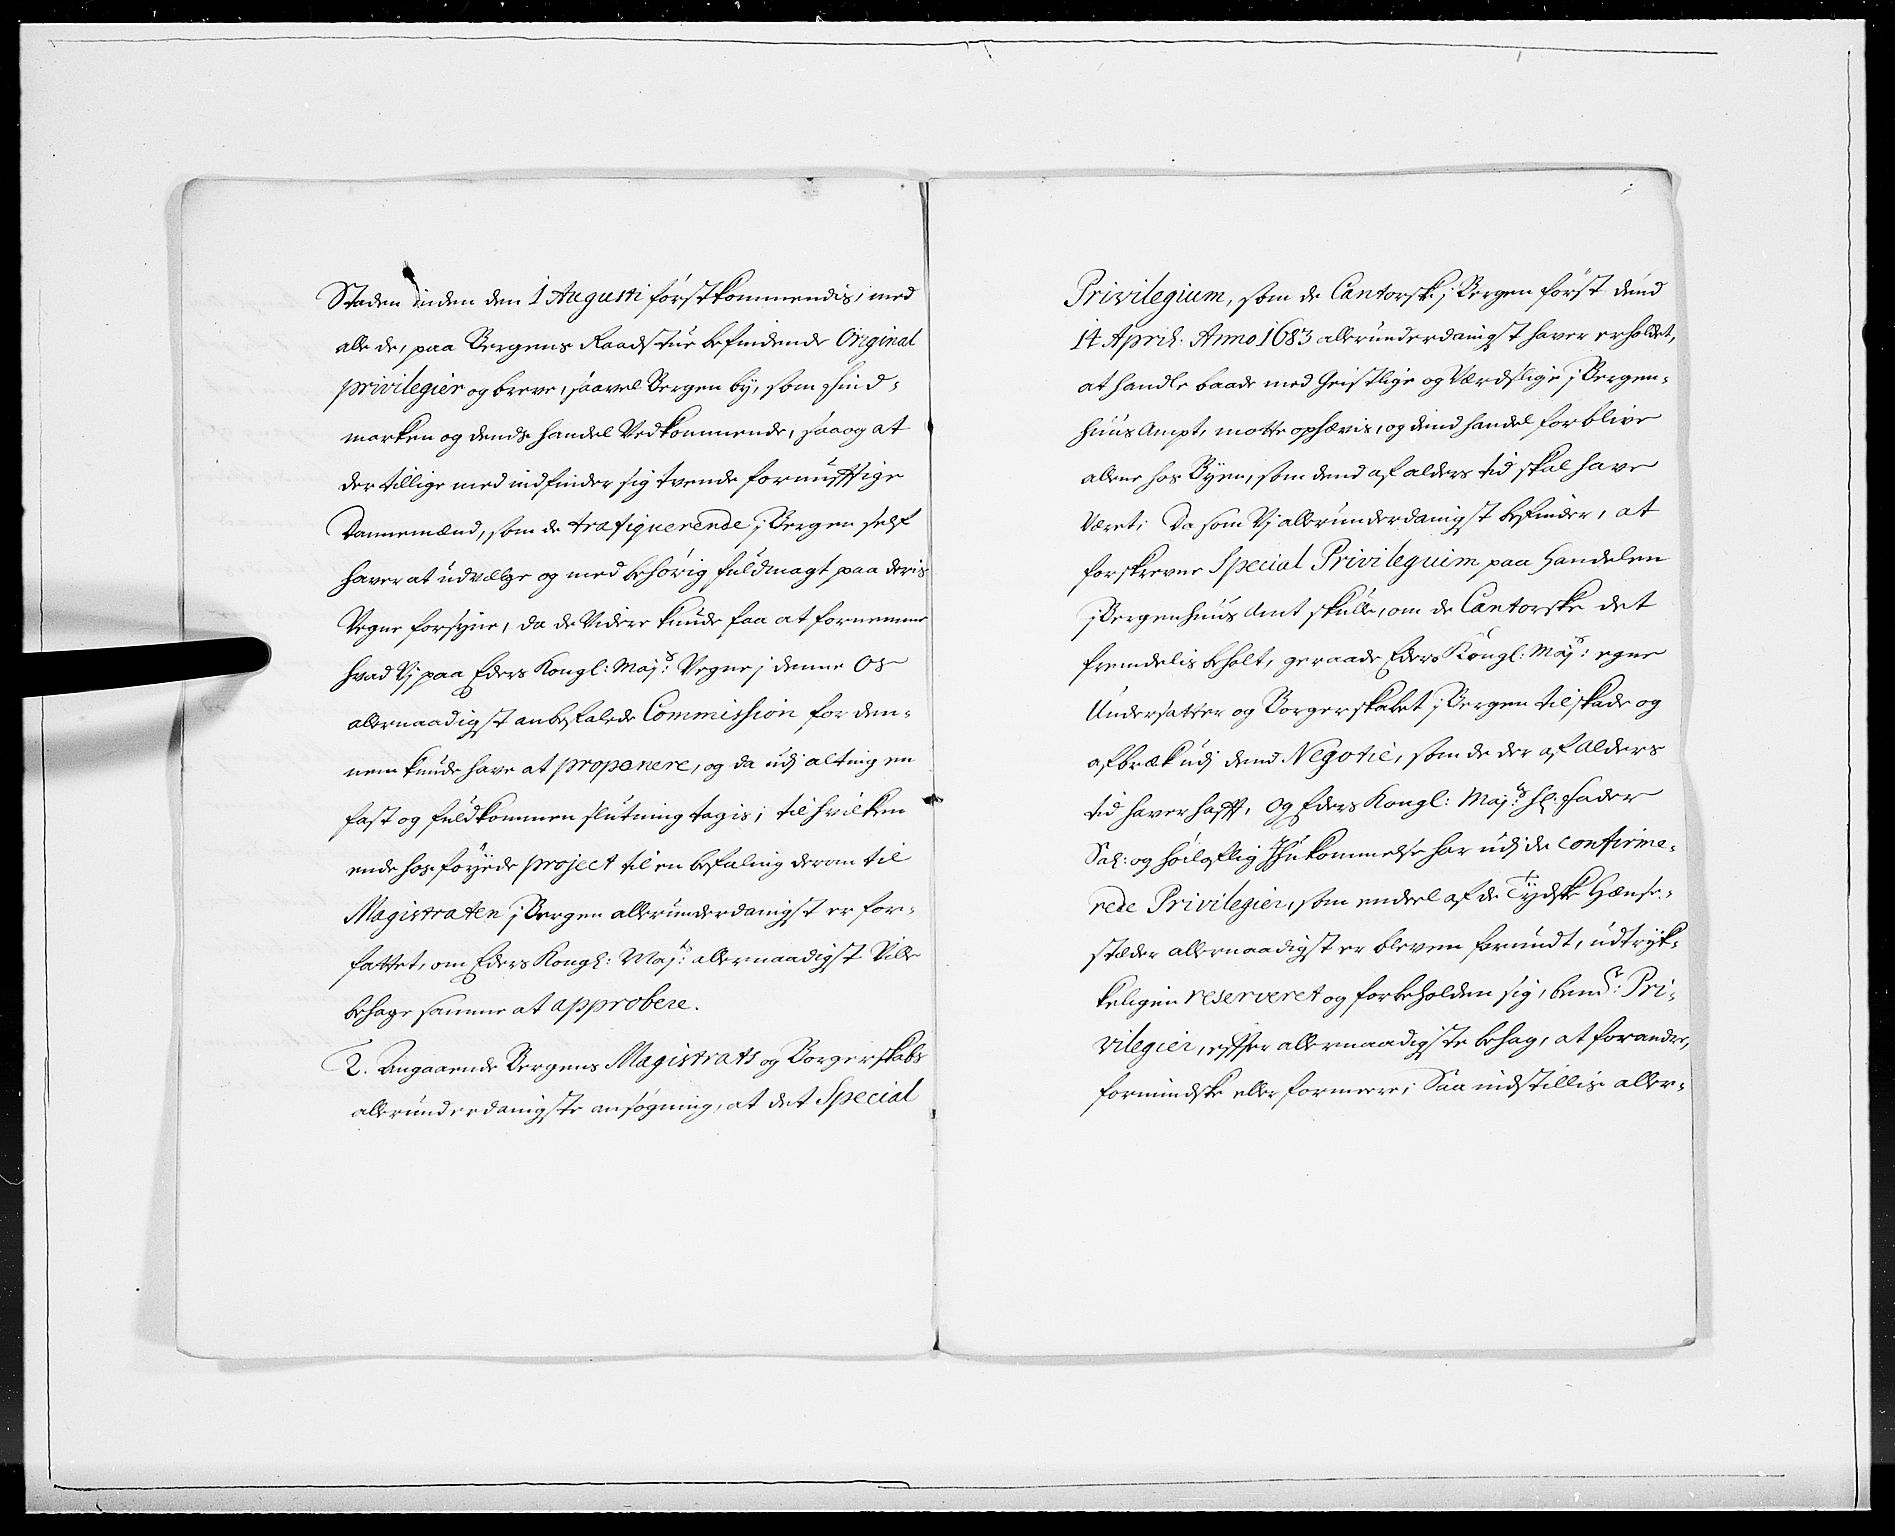 Staden inden den 1 Augusti förstkommendis, med
alle de, paa Bergens Raadstue befindende Original
privilegier og breve, saavel Bergen by, som Find-
marken og dends handel Vedkommende, saa og at
der tillige med indfinder sig tvende fornufftige
Dannemænd, som de trafiquerende j Bergen self
haver at udvælge og med behörig fuldmagt paa deris
Vegne forsyne, da de Videre kunde faa at fornemme
hvad Vj paa Eders Kongl: Maj:s Vegne j denne Os
allernaadigst anbefalede Commission for den-
nem kunde have at proponere, og da udj alting en
fast og fuldkommen slutning tagis; til hvilken
ende hosföyede project til en befaling derom til
Magistraten j Bergen allerunderdanigst er for-
fattet, om Eders Kongl: Maj:s allernaadigst Ville
behage samme at approbere.
2. Angaaende Bergens Magistrats og Borgerskabs
allerunderdanigste ansögning, at det Special
Privilegium, som de Cantorske j Bergen först dend
14 April. Anno 1683 allerunderdanigst haver erholdet,
at handle baade med Geistlige og Værdslige j Bergen-
huus Ampt, motte ophævis, og dend handel forblive
allene hos Byen, som dend af alders tid skal have
Været; Da som Vj allerunderdanigst befinder, at
forskrevne Special Privilegium paa Handelen
j Bergenhuus Amt skulle, om de Cantorske det
fremdelis beholt, geraade Eders Kongl: Maj:s egne
Undersatter og Borgerskabet j Bergen til skade og
afbræk udj dend Negotie, som de der af Alders
tid haver hafft, Og Eders Kongl: Maj:s Hr. Fader
Sal: og höilofflig Ihukommelse har udj de confirme-
rede Privilegier, som endeel af de Tydske Hænse-
stæder allernaadigst er bleven forundt, udtryk-
keligen reserveret og forbeholden sig, bemte: Pri-
vilegier, effter allernaadigste behag, at forandre,
formindske eller formeere; Saa indstillis aller-